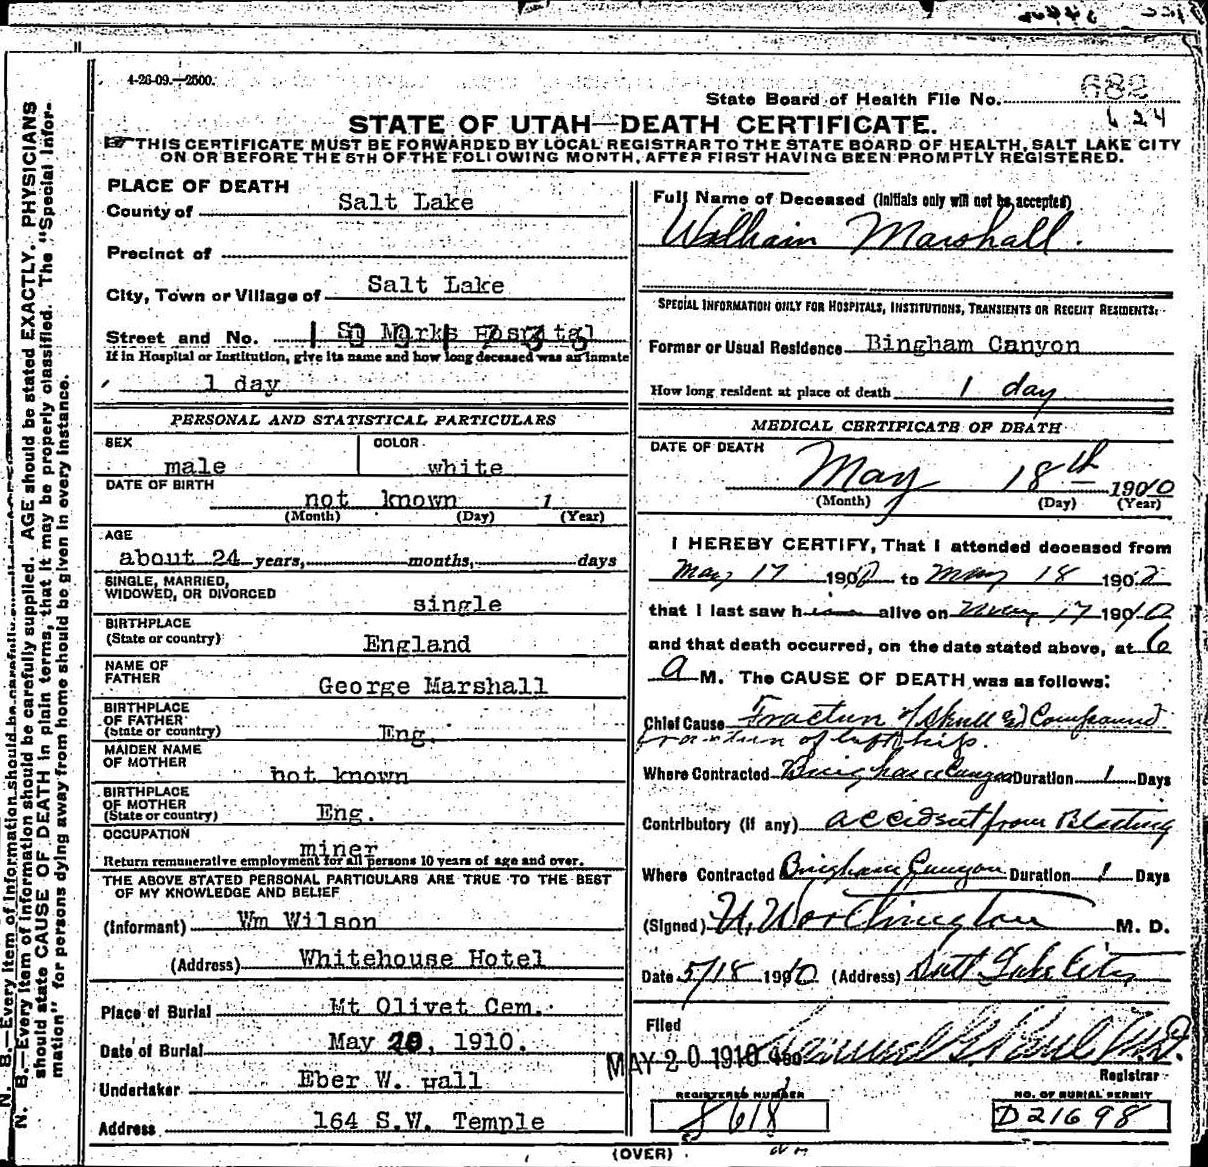 4-26-09.—2500.
State Board of Health File No. 682
624
STATE OF UTAH—DEATH CERTIFICATE.
THIS CERTIFICATE MUST BE FORWARDED BY LOCAL REGISTRAR TO THE STATE BOARD OF HEALTH, SALT LAKE CITY
ON OR BEFORE THE 5TH OF THE FOLLOWING MONTH, AFTER FIRST HAVING BEEN PROMPTLY REGISTERED.
PLACE OF DEATH
County of Salt Lake
Precinct of
City, Town or Village of Salt Lake
Street and No. St Marks Hospital
If in Hospital or Institution, give its name and how long deceased was an inmate
1 day
PERSONAL AND STATISTICAL PARTICULARS
SEX COLOR
male white
DATE OF BIRTH
not known 1
(Month) (Day) (Year)
AGE
about 24 years, months, days
SINGLE, MARRIED,
WIDOWED, OR DIVORCED single
BIRTHPLACE
(State or country) England
NAME OF
FATHER George Marshall
BIRTHPLACE
OF FATHER
(State or country) Eng.
MAIDEN NAME
OF MOTHER not known
BIRTHPLACE
OF MOTHER
(State or country) Eng.
OCCUPATION
miner
Return remunerative employment for all persons 10 years of age and over.
THE ABOVE STATED PERSONAL PARTICULARS ARE TRUE TO THE BEST
OF MY KNOWLEDGE AND BELIEF
(Informant) Wm Wilson
(Address) Whitehouse Hotel
Place of Burial Mt Olivet Cem.
Date of Burial May 20, 1910.
Undertaker Eber W. Hall
Address 164 S.W. Temple
Full Name of Deceased (Initials only will not be accepted)
William Marshall.
SPECIAL INFORMATION ONLY FOR HOSPITALS, INSTITUTIONS, TRANSIENTS OR RECENT RESIDENTS.
Former or Usual Residence Bingham Canyon
How long resident at place of death 1 day
MEDICAL CERTIFICATE OF DEATH
DATE OF DEATH
May 18th 1910
(Month) (Day) (Year)
I HEREBY CERTIFY, That I attended deceased from
May 17 190 to May 18 190
that I last saw him alive on May 17 1910
and that death occurred, on the date stated above, at 6
a M. The CAUSE OF DEATH was as follows:
Chief Cause Fracture of Skull and Compound
fracture of left hip.
Where Contracted Bingham Canyon Duration 1 Days
Contributory (if any) accident from Blasting
Where Contracted Bingham Canyon Duration 1 Days
(Signed) U. Worthington M. D.
Date 5/18 1910 (Address) Salt Lake City
Filed
MAY 20 1910 190
Registrar
REGISTERED NUMBER
8618
NO. OF BURIAL PERMIT
D21698
(OVER)
N. B.—Every item of information should be carefully supplied. AGE should be stated EXACTLY. PHYSICIANS
should state CAUSE OF DEATH in plain terms, that it may be properly classified. The "Special Infor-
mation" for persons dying away from home should be given in every instance.